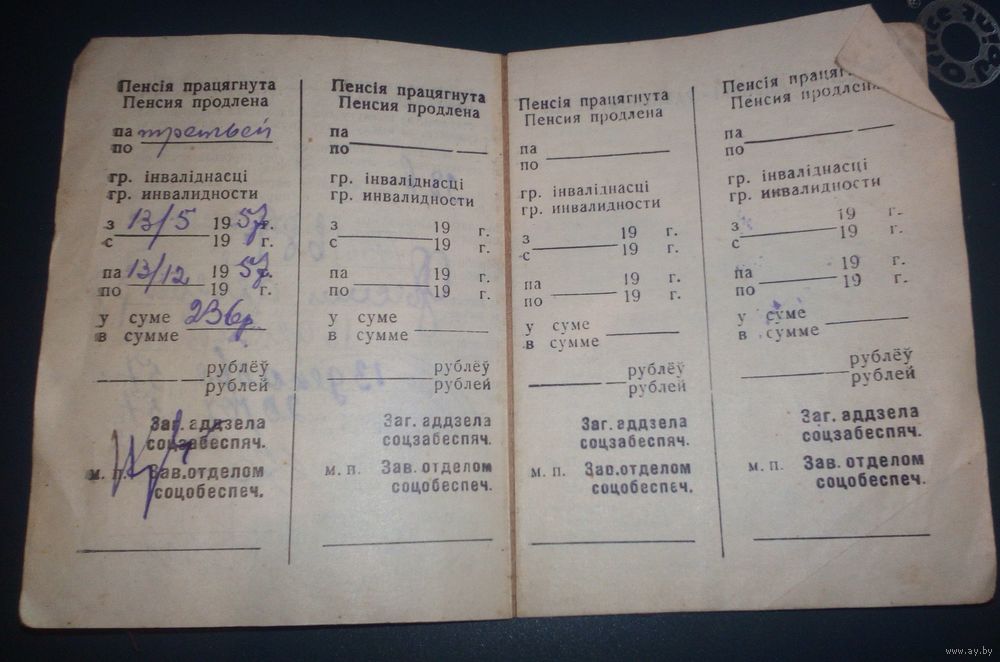 Пенсія працягнута
Пенсия продлена
па третьей
по
гр. інваліднасці
гр. инвалидности
з 13/5 19 57г.
с 19 г.
па 13/12 19 57г.
по 19 г.
у суме 236р.
в сумме
рублёў
рублей
Заг. аддзела
соцзабеспяч.
м. п. Зав.отделом
соцобеспеч.
Пенсія працягнута
Пенсия продлена
па
по
гр. інваліднасці
гр. инвалидности
з 19 г.
с 19 г.
па 19 г.
по 19 г.
у суме
в сумме
рублёў
рублей
Заг. аддзела
соцзабеспяч.
м. п. Зав. отделом
соцобеспеч.
Пенсія працягнута
Пенсия продлена
па
по
гр. інваліднасці
гр. инвалидности
з 19 г.
с 19 г.
па 19 г.
по 19 г.
у суме
в сумме
рублёў
рублей
Заг. аддзела
соцзабеспяч.
м. п. Зав.отделом
соцобеспеч.
Пенсія
Пенсия продлена
па
по
гр. інваліднасці
гр. инвалидности
з 19 г.
с 19 г.
па 19 г.
по 19 г.
у суме
в сумме
рублёў
рублей
Заг. аддзела
соцзабеспяч.
м. п. Зав. отделом
соцобеспеч.
www.ay.by